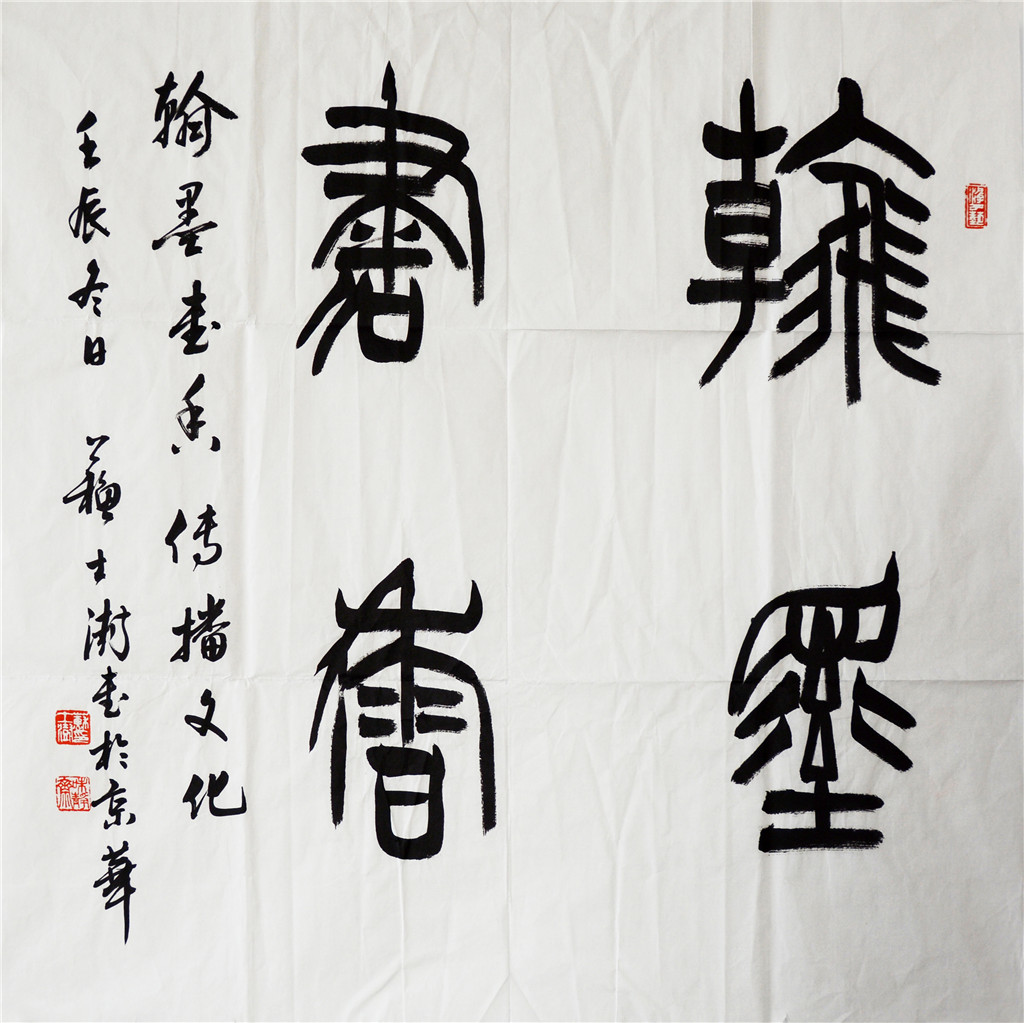 翰墨
書香
翰墨書香傳播文化
壬辰冬日 蘇士澍書於京華